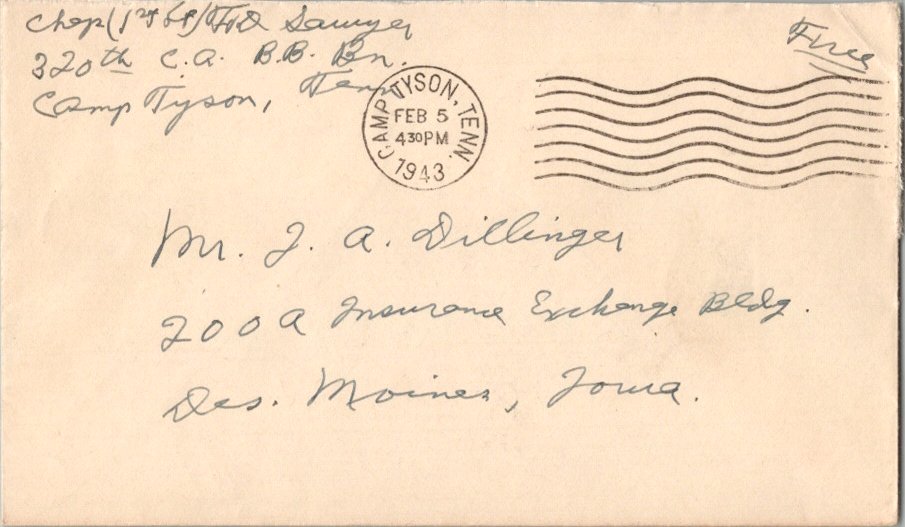 Chap (1st Lt) F.D. Sawyer
320th C.A. B.B. Bn.
Camp Tyson, Tenn
Free
CAMP TYSON, TENN.
FEB 5
430PM
1943
Mr. J. A. Dillinger
200A Insurance Exchange Bldg.
Des. Moines, Iowa.